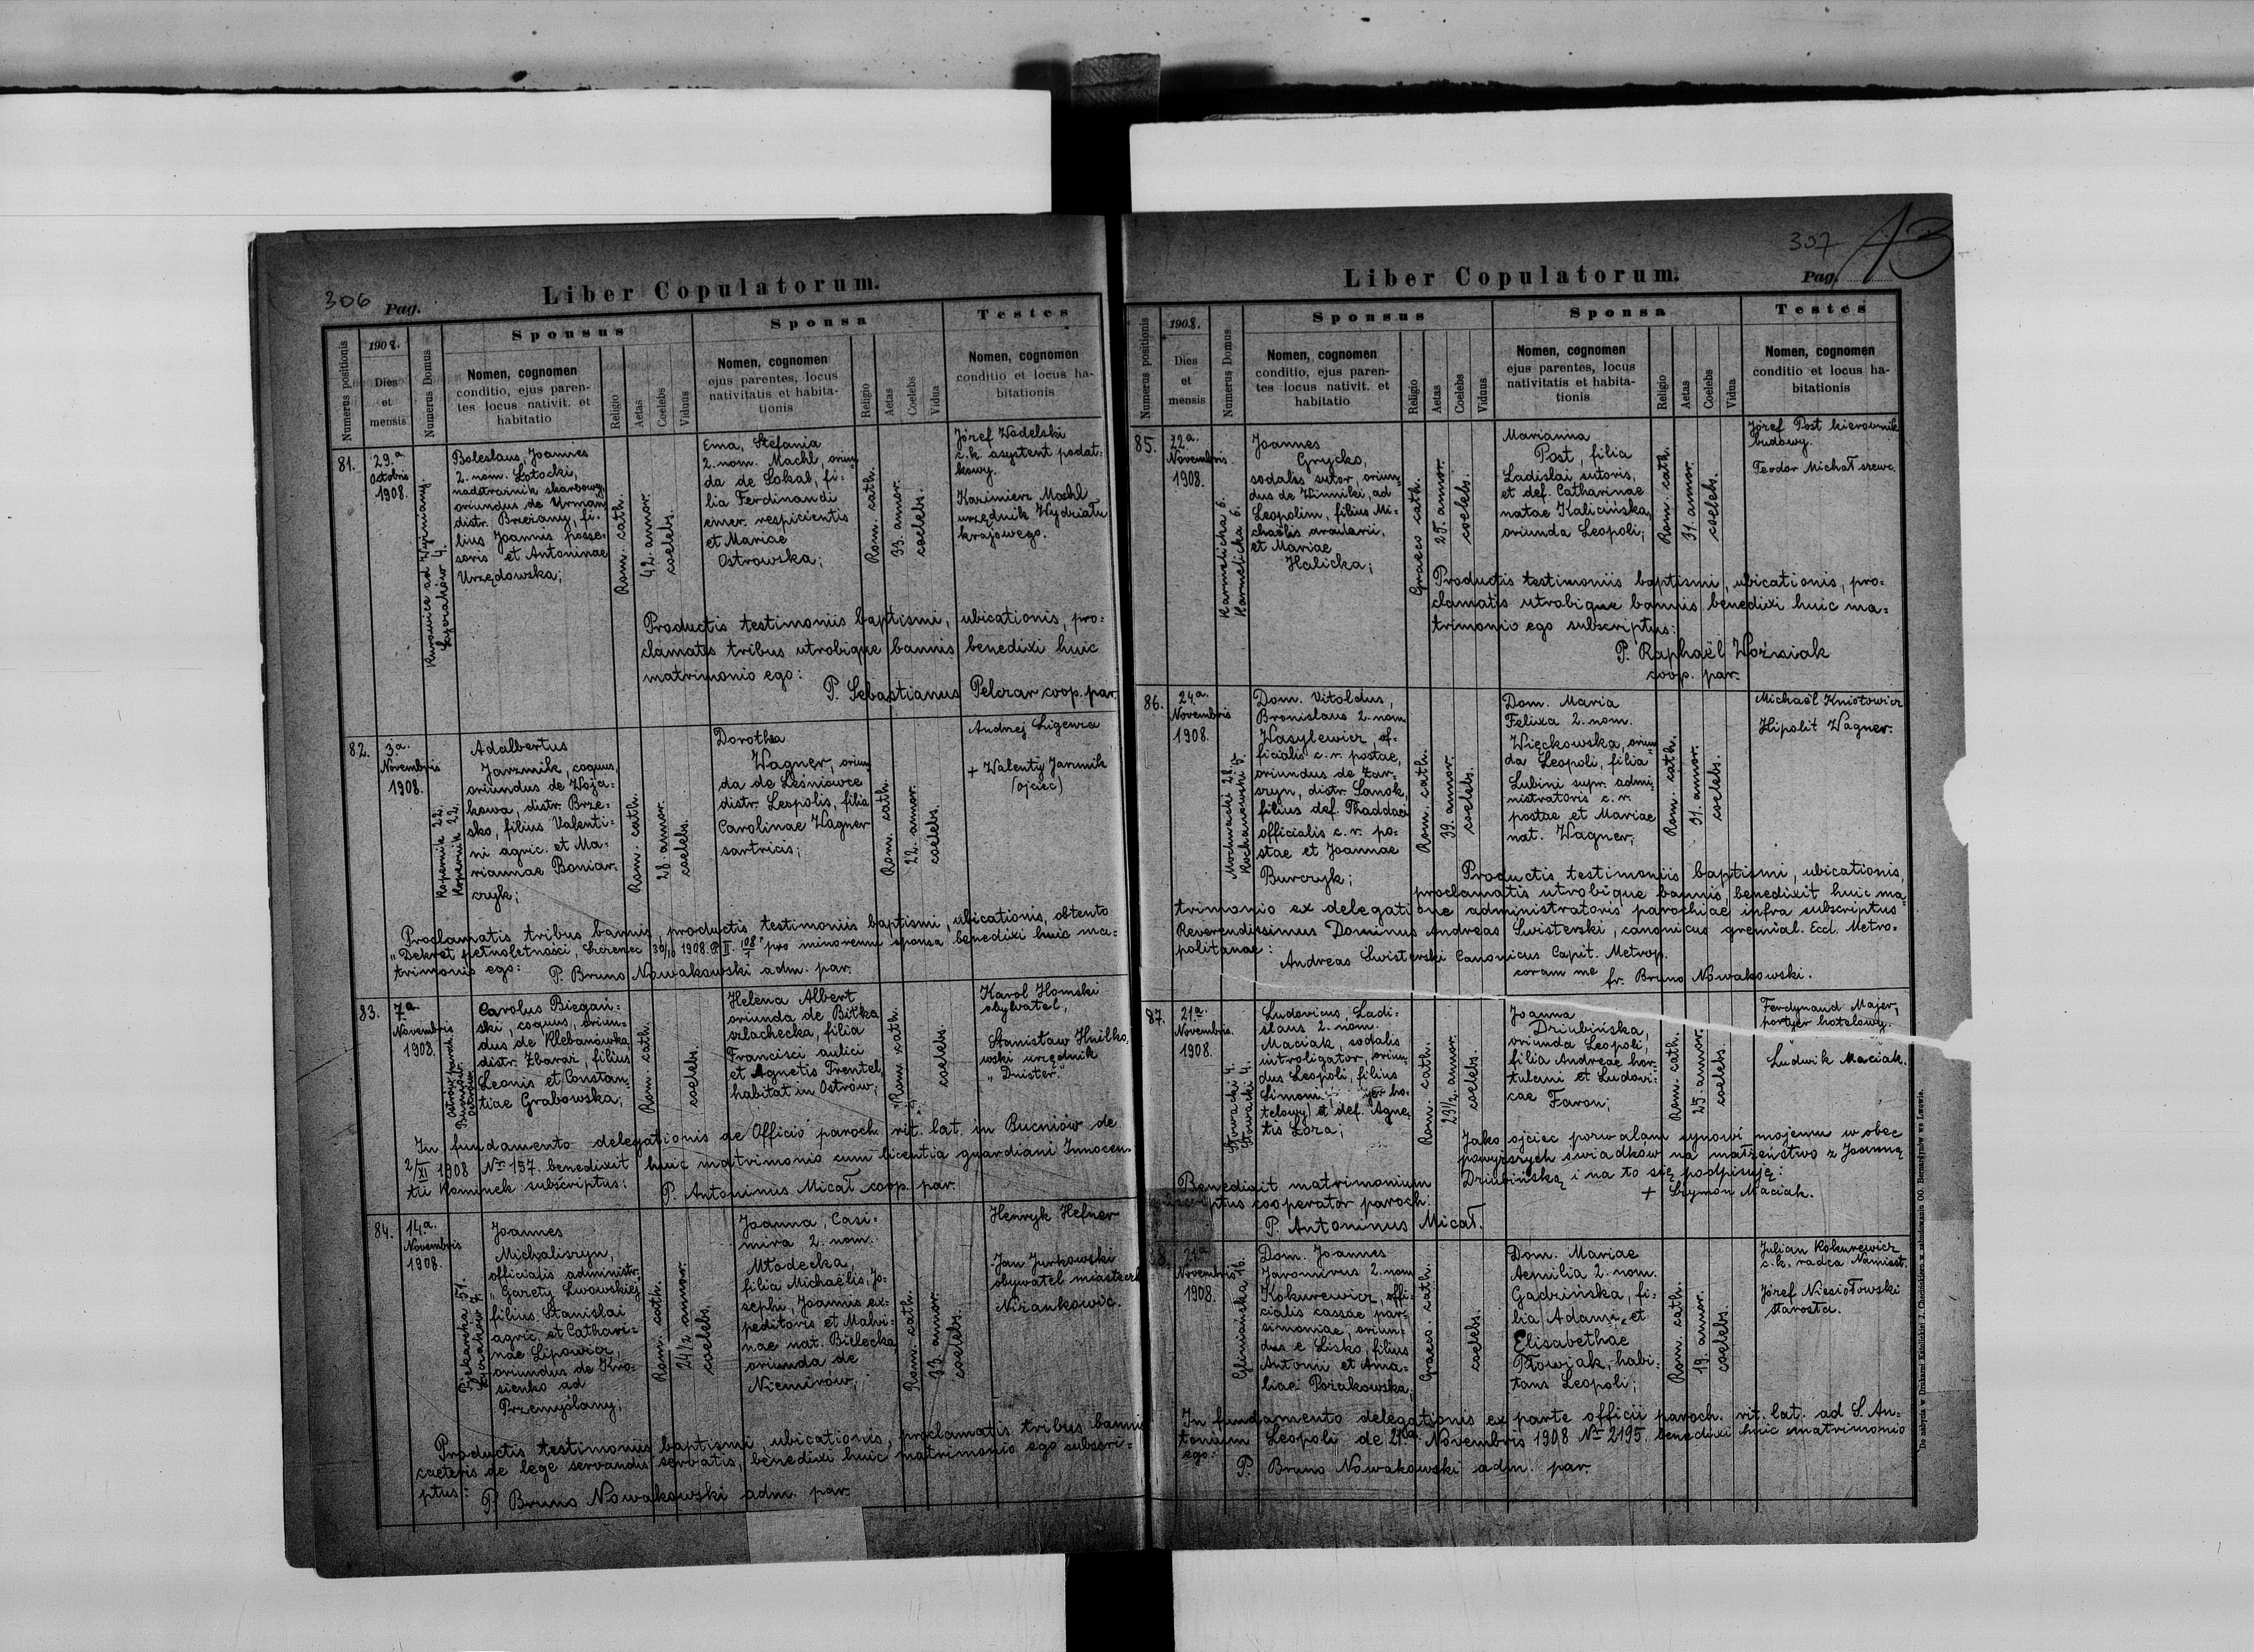 306 Pag.
Liber Copulatorum.
Numerus positionis
1908.
Dies
et
mensis
Numerus Domus
Sponsus
Nomen, cognomen
conditio, ejus paren-
tes locus nativit. et
habitatio
Religio
Aetas
Coelebs
Viduus
Sponsa
Nomen, cognomen
ejus parentes, locus
nativitatis et habita-
tionis
Religio
Aetas
Coelebs
Vidua
Testes
Nomen, cognomen
conditio et locus ha-
bitationis
81.
29.a
Octobris
1908.
Kurowice ad Wyżniany
Łyczaków 4.
Boleslaus, Joannes
2. nom. Łotocki,
nadstrażnik skarbowy,
oriundus de Urmań
distr. Brzeżany, fi-
lius Joannis posse-
soris et Antoninae
Urzędowska;
Rom. cath.
42. annor.
coelebs.
Ema, Stefania
2. nom. Machl, oriun-
da de Sokal, fi-
lia Ferdinandi
emer. respicientis
et Mariae
Ostrowska;
Rom. cath.
33. annor.
coelebs.
Józef Wadelski
c.k. asystent podat-
kowy.
Kazimierz Machl
urzędnik Wydziału
krajowego.
Productis testimoniis baptismi, ubicationis, pro-
clamatis tribus utrobique bannis benedixi huic
matrimonio ego:
P. Sebastianus Pelczar coop. par.
82.
3.a
Novembris
1908.
Kopernik 22.
Kopernik 22.
Adalbertus
Jarzmik, coquus,
oriundus de Woja-
kowa, distr. Brze-
sko, filius Valenti-
ni agric. et Ma-
riannae Boniar-
czyk;
Rom. cath.
28 annor.
coelebs.
Dorothea
Wagner, oriun-
da de Leśniowce
distr. Leopolis, filia
Carolinae Wagner
sartricis;
Rom. cath.
22. annor.
coelebs.
Andrzej Ligenza
+ Walenty Jarzmik
(ojciec)
Proclamatis tribus bannis, productis testimoniis baptismi, ubicationis, obtento
"Dekret pełnoletności, Szczerzec 30/10 1908. P. II. 108/ " pro minorenni sponsa benedixi huic ma-
trimonio ego: P. Bruno Nowakowski adm. par.
83.
7.a
Novembris
1908.
Ostrów
Carolus Biegań-
ski, coquus, oriun-
dus de Klebanówka
distr. Zbaraż, filius
Leonis et Constan-
tiae Grabowska;
Rom. cath.
coelebs.
Helena Albert,
oriunda de Bitka
szlachecka, filia
Francisci aulici
et Agnetis Trentel,
habitat in Ostrów;
Rom. cath.
coelebs.
Karol Homski
obywatel,
Stanisław Hnilko,
wski urzędnik
"Dnister."
In fundamento delegationis de Officio paroch. rit. lat. in Bucniów de
2/XI 1908 Nr 157. benedixit huic matrimonio cum licentia guardiani Innocen-
tii Kominek subscriptus: P. Antoninus Micał coop. par.
84.
14.a
Novembris
1908.
Piekarska 51.
Łyczaków 7.
Joannes
Michaliszyn,
officialis administr.
"Gazety Lwowskiej"
filius Stanislai
agric. et Cathari-
nae Lipowicz,
oriundus de Kro-
sienko ad
Przemyślany;
Rom. cath.
24½ annor.
coelebs.
Joanna, Casi-
mira 2. nom.
Młodecka,
filia Michaëlis, Jo-
sephi, Joannis ex-
peditoris et Malvi-
nae nat. Bielecka
oriunda de
Niemirów;
Rom. cath.
33. annor.
coelebs.
Henryk Hefner
Jan Jurkowski
obywatel miasteczk
Niżankowic.
Productis testimoniis baptismi, ubicationis, proclamatis tribus bannis
caeteris de lege servandis servatis, benedixi huic matrimonio ego subscri-
ptus: P. Bruno Nowakowski adm. par.
307
Pag. 43
Liber Copulatorum.
Numerus positionis
1908.
Dies
et
mensis
Numerus Domus
Sponsus
Nomen, cognomen
conditio, ejus paren-
tes locus nativit. et
habitatio
Religio
Aetas
Coelebs
Viduus
Sponsa
Nomen, cognomen
ejus parentes, locus
nativitatis et habita-
tionis
Religio
Aetas
Coelebs
Vidua
Testes
Nomen, cognomen
conditio et locus ha-
bitationis
85.
22.a
Novembris
1908.
Karmelicka 6.
Karmelicka 6.
Joannes
Grycko,
sodalis sutor, oriun-
dus de Winniki, ad
Leopolim, filius Mi-
chaëlis aradarii,
et Mariae
Halicka;
Graeco cath.
25. annor.
coelebs.
Marianna
Post, filia
Ladislai sutoris,
et def. Catharinae
natae Kalicińska,
oriunda Leopoli;
Rom. cath.
31. annor.
coelebs.
Józef Post kierownik
budowy.
Teodor Michał szewc.
Productis testimoniis baptismi, ubicationis, pro-
clamatis utrobique bannis benedixi huic ma-
trimonio ego subscriptus:
P. Raphaël Woźniak
coop. par.
86.
24.a
Novembris
1908.
Mochnacki 28.
Kochanowski 5.
Dom. Vitoldus,
Bronislaus 2. nom
Wasylewicz, of-
ficialis c.r. postae,
oriundus de Zar-
szyn, distr. Sanok,
filius def. Thaddaei
officialis c.r. po-
stae et Joannae
Burczyk;
Rom. cath.
39. annor.
coelebs.
Dom. Maria
Felixa 2. nom.
Więckowska, oriun-
da Leopoli, filia
Lubini supr. admi-
nistratoris c.r.
postae et Mariae
nat. Wagner;
Rom. cath.
31. annor.
coelebs.
Michaël Kniotowicz
Hipolit Wagner.
Productis testimoniis baptismi, ubicationis,
proclamatis utrobique bannis, benedixit huic ma-
trimonio ex delegatione administratoris parochiae infra subscriptus
Reverendissimus Dominus Andreas Swisterski, canonicus gremial. Eccl. Metro-
politanae:
Andreas Swisterski Canonicus Capit. Metrop.
coram me fr. Bruno Nowakowski.
87.
21.a
Novembris.
1908.
Słowacki 4.
Słowacki 4.
Ludovicus, Ladi-
slaus 2. nom.
Maciak, sodalis
introligator, oriun-
dus Leopoli, filius
Simoni yer ho-
telowy) et def. Agne-
tis Łoza;
Rom. cath.
23½. annor.
coelebs.
Joanna
Dziubińska,
oriunda Leopoli,
filia Andreae hor-
tulani et Ludovi-
cae Faron;
Rom. cath.
25. annor.
coelebs.
Ferdynand Majer,
portyer hotelowy.
Ludwik Maciak.
Jako ojciec pozwalam synowi mojemu w obec
powyższych świadków na małżeństwo z Joanną
Dziubińską i na to się podpisuję:
+ Szymon Maciak.
Benedixit matrimonium
ptus cooperator paroch.
P. Antoninus Micał.
8.
21.a
Novembris
1908.
Gliniańska 16.
Dom. Joannes
Jaromirus 2. nom
Kokurewicz, offi-
cialis cassae par-
simoniae, oriun-
dus e Lisko, filius
Antonii et Ama-
liae Pożakowska;
Graeco. cath.
coelebs.
Dom. Mariae
Aemilia 2. nom.
Gadzińska, fi-
lia Adami, et
Elisabethae
Ptowiak, habi-
tans Leopoli;
Rom. cath.
19. annor.
coelebs.
Julian Kokurewicz
c.k. radca Namiest.
Józef Niesiołowski
starosta.
In fundamento delegationis ex parte officii paroch. rit. lat. ad S. An-
tonium Leopoli de 21.a Novembris 1908 Nr 2195. benedixi huic matrimonio
ego:
P. Bruno Nowakowski adm. par.
Do nabycia w Drukarni Katolickiej J. Chęcińskiego w zabudowaniu OO. Bernardynów we Lwowie.